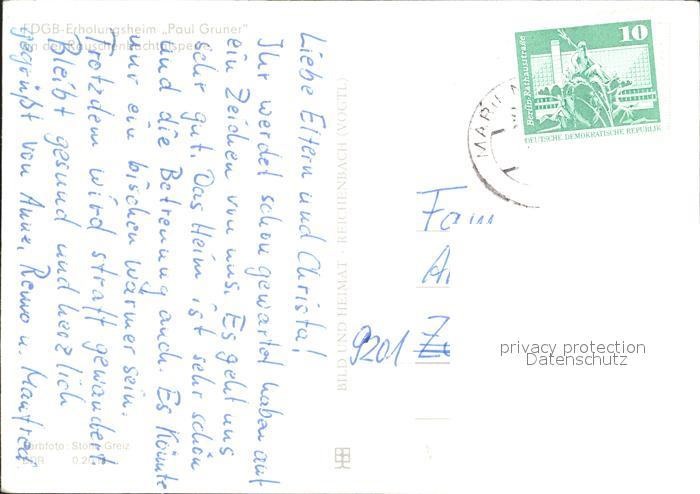 FDGB-Erholungsheim „Paul Gruner"
an der Rauschenbachtalsperre
Liebe Eltern und Christa!
Ihr werdet schon gewartet haben auf
ein Zeichen von uns. Es geht uns
sehr gut. Das Heim ist sehr schön
und die Betreuung auch. Es könnte
nur ein bischen wärmer sein.
Trotzdem wird straff gewandert.
Bleibt gesund und herzlich
gegrüßt von Anne, Remo u. Manfred
Farbfoto: Greiz
DDR
BILD UND HEIMAT · REICHENBACH (VOGTL)
10
Berlin-Rathausstraße
DEUTSCHE DEMOKRATISCHE REPUBLIK
MARIE
Fam
9201
privacy protection
Datenschutz